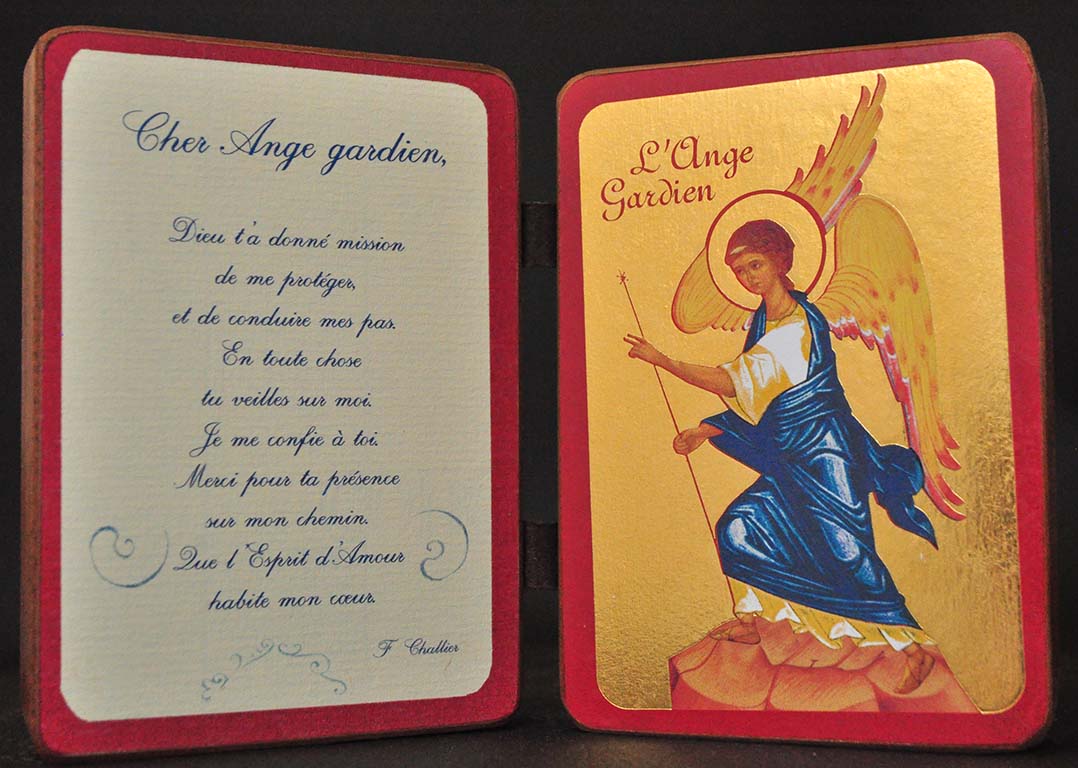 Cher Ange gardien,
Dieu t'a donné mission
de me protéger,
et de conduire mes pas.
En toute chose
tu veilles sur moi.
Je me confie à toi.
Merci pour ta présence
sur mon chemin.
Que l'Esprit d'Amour
habite mon cœur.
F Challier
L'Ange
Gardien